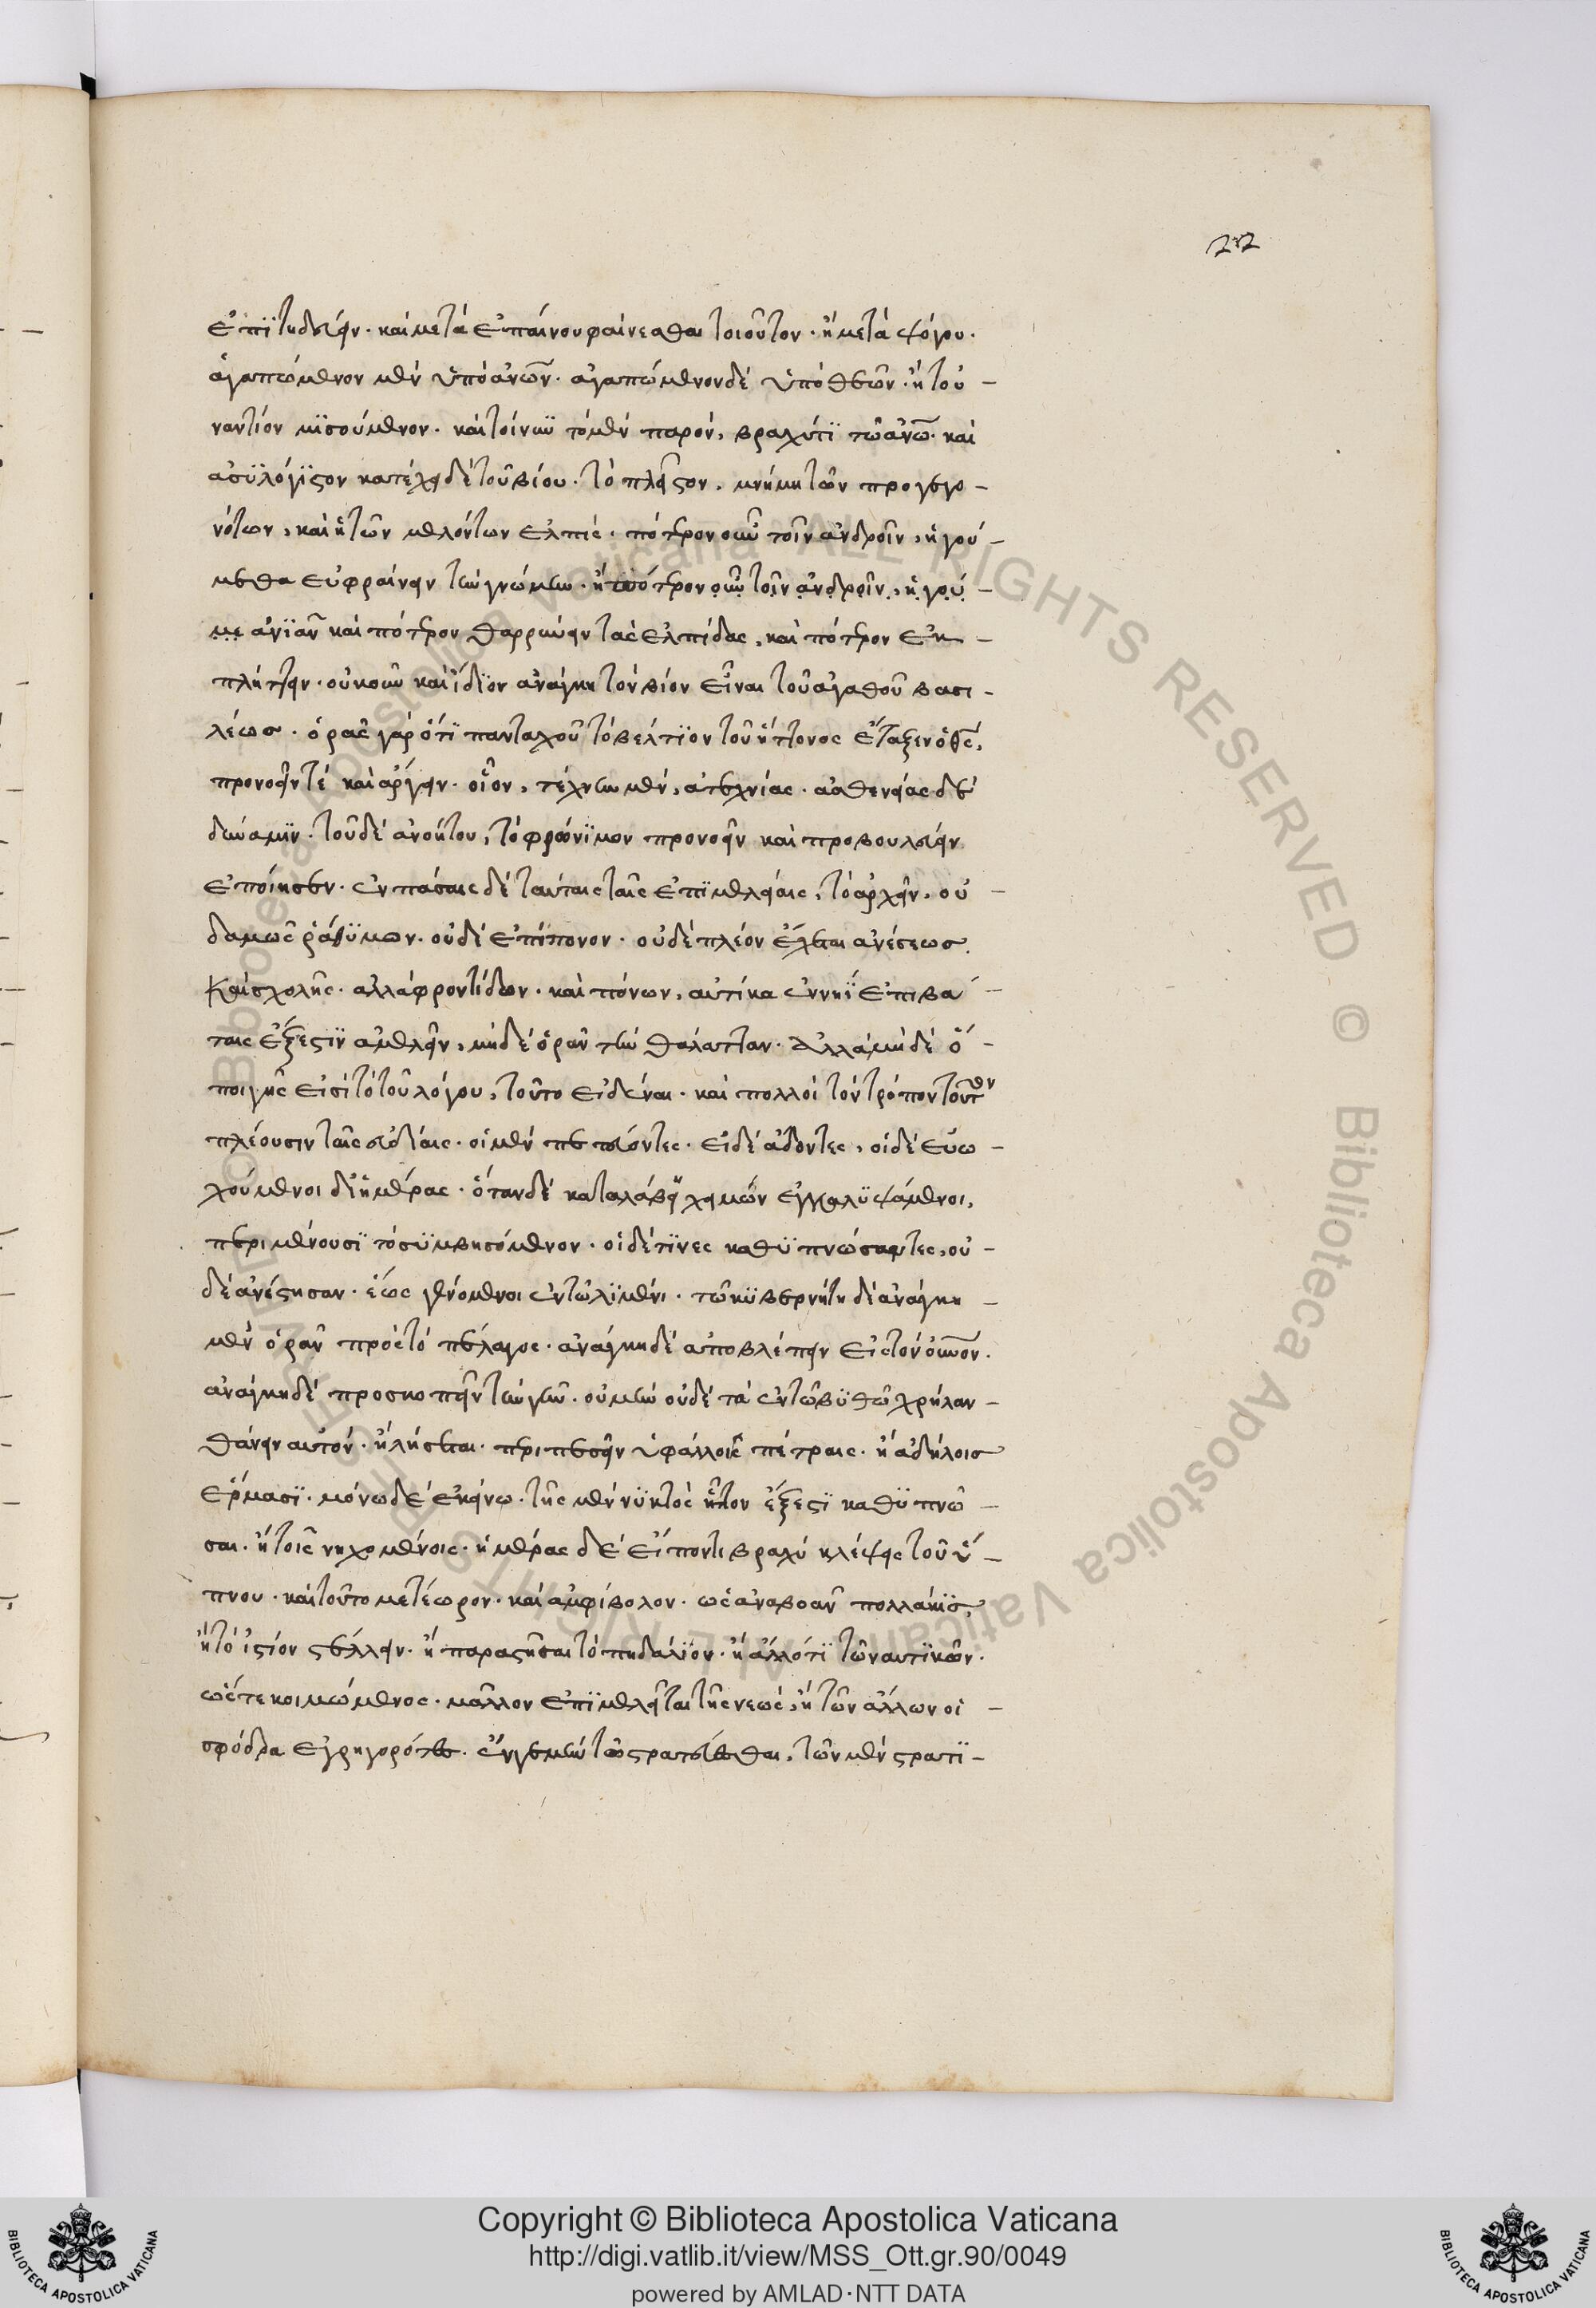 22
ἐπϊτηδεύειν· καὶ μετὰ ἐπαίνου φαίνεσθαι τοιοῦτον· ἢ μετὰ ψόγου·
ἀγαπώμενον μὲν ὑπὸ ἀνων· ἀγαπώμενον δὲ ὑπὸ θεῶν· ἢ του-
ναντίον μϊσούμενον· καὶ τοίνυν τὸ μὲν παρὸν, βραχύ τϊ τῶ ἀνω· καὶ
ἀσϋλόγϊστον κατέχει δὲ τοῦ βίου· τὸ πλεῖστον, μνήμη τῶν προγεγο-
νότων, καὶ ἡ τῶν μελόντων ἐλπὶς· πότερον οὖν τοῖν ἀνδροῖν, ἡγού-
μεθα εὐφραίνειν τὴν γνώμην· ἢ πότερον οὖν τοῖν ἀνδροῖν, ἡγού-
με ἀνϊᾶν καὶ πότερον θαρρύνειν τὰς ἐλπίδας, καὶ πότερον ἐκ-
πλήττειν· οὐκοῦν καὶ ἴδϊον ἀνάγκη τὸν βίον εἶναι τοῦ ἀγαθοῦ βασι-
λέως· ὁρᾶς γὰρ ὅτϊ πανταχοῦ τὸ βέλτϊον τοῦ ἥττονος ἔταξεν ὁ θς,
προνοεῖν τὲ καὶ ἄρχειν· οἷον, τέχνην μὲν, ἀτεχνίας· ἀσθενείας δὲ
δύναμϊν· τοῦ δὲ ἀνοήτου, τὸ φρόνϊμον προνοεῖν καὶ προβουλεύειν
ἐποίησεν· ἐν πάσαις δὲ ταύταις ταῖς ἐπϊμελείαις, τὸ ἄρχειν, οὐ-
δαμῶς ῥάθϋμον· οὐδὲ ἐπίπονον· οὐδὲ πλέον ἔχεται ἀνέσεως
Καὶ σχολῆς· ἀλλὰ φροντίδων· καὶ πόνων, αὐτίκα ἐν νηῒ ἐπιβά-
ταις ἔξεστϊν ἀμελεῖν, μηδὲ ὁρᾶν τὴν θάλατταν· ἀλλὰ μηδὲ ὅ-
ποι γῆς εἰσὶ τὸ τοῦ λόγου, τοῦτο εἰδέναι· καὶ πολλοὶ τὸν τρόπον τοῦτον
πλέουσιν ταῖς εὐδίαις· οἱ μὲν πεττεύοντες· εἱ δὲ ἄδοντες, οἱ δὲ εὐω-
χούμενοι δι' ἡμέρας· ὅταν δὲ καταλάβῃ χειμὼν ἐγκαλϋψάμενοι,
περιμένουσϊ τὸ σϋμβησόμενον· οἱ δέ τϊνες καθϋπνώσαντες, οὐ-
δὲ ἀνέστησαν· ἕως γενόμενοι ἐν τῶ λϊμένι· τῶ κϋβερνήτη δὲ ἀνάγκη
μὲν ὁρᾶν πρὸς τὸ πέλαγος· ἀνάγκη δὲ ἀποβλέπειν εἰς τὸν ουνον·
ἀνάγκη δὲ προσκοπεῖν τὴν γῆν· οὐ μὴν οὐδὲ τὰ ἐν τῶ βϋθῶ χρὴ λαν-
θάνειν αὐτόν· ἢ λήσεται· περιπεσεῖν ὑφάλλοις πέτραις· ἢ ἀδήλοις
ἕρμασϊ· μόνω δὲ ἐκείνω· τῆς μὲν νϋκτὸς ἧττον ἔξεστϊ καθϋπνῶ-
σαι· ἢ τοῖς νηχομένοις· ἡμέρας δὲ εἴ ποντι βραχὺ κλέψεις τοῦ ὕ-
πνου· καὶ τοῦτο μετέωρον· καὶ ἀμφίβολον· ὡς ἀναβοᾶν πολλάκϊς,
ἢ τὸ ἱστίον στέλλειν· ἢ παραστῆσαι τὸ πηδάλϊον· ἢ ἄλλό τϊ τῶν αυτϊκῶν·
ὥστε κοιμώμενος· μᾶλλον ἐπϊμελεῖται τῆς νεὼς, ἢ τῶν ἄλλων οἱ
σφόδρα ἐγρηγορότες· ἔν γε μὴν τῶ στρατεύεσθαι, τῶν μὲν στρατϊ-
Copyright © Biblioteca Apostolica Vaticana
http://digi.vatlib.it/view/MSS_Ott.gr.90/0049
powered by AMLAD·NTT DATA